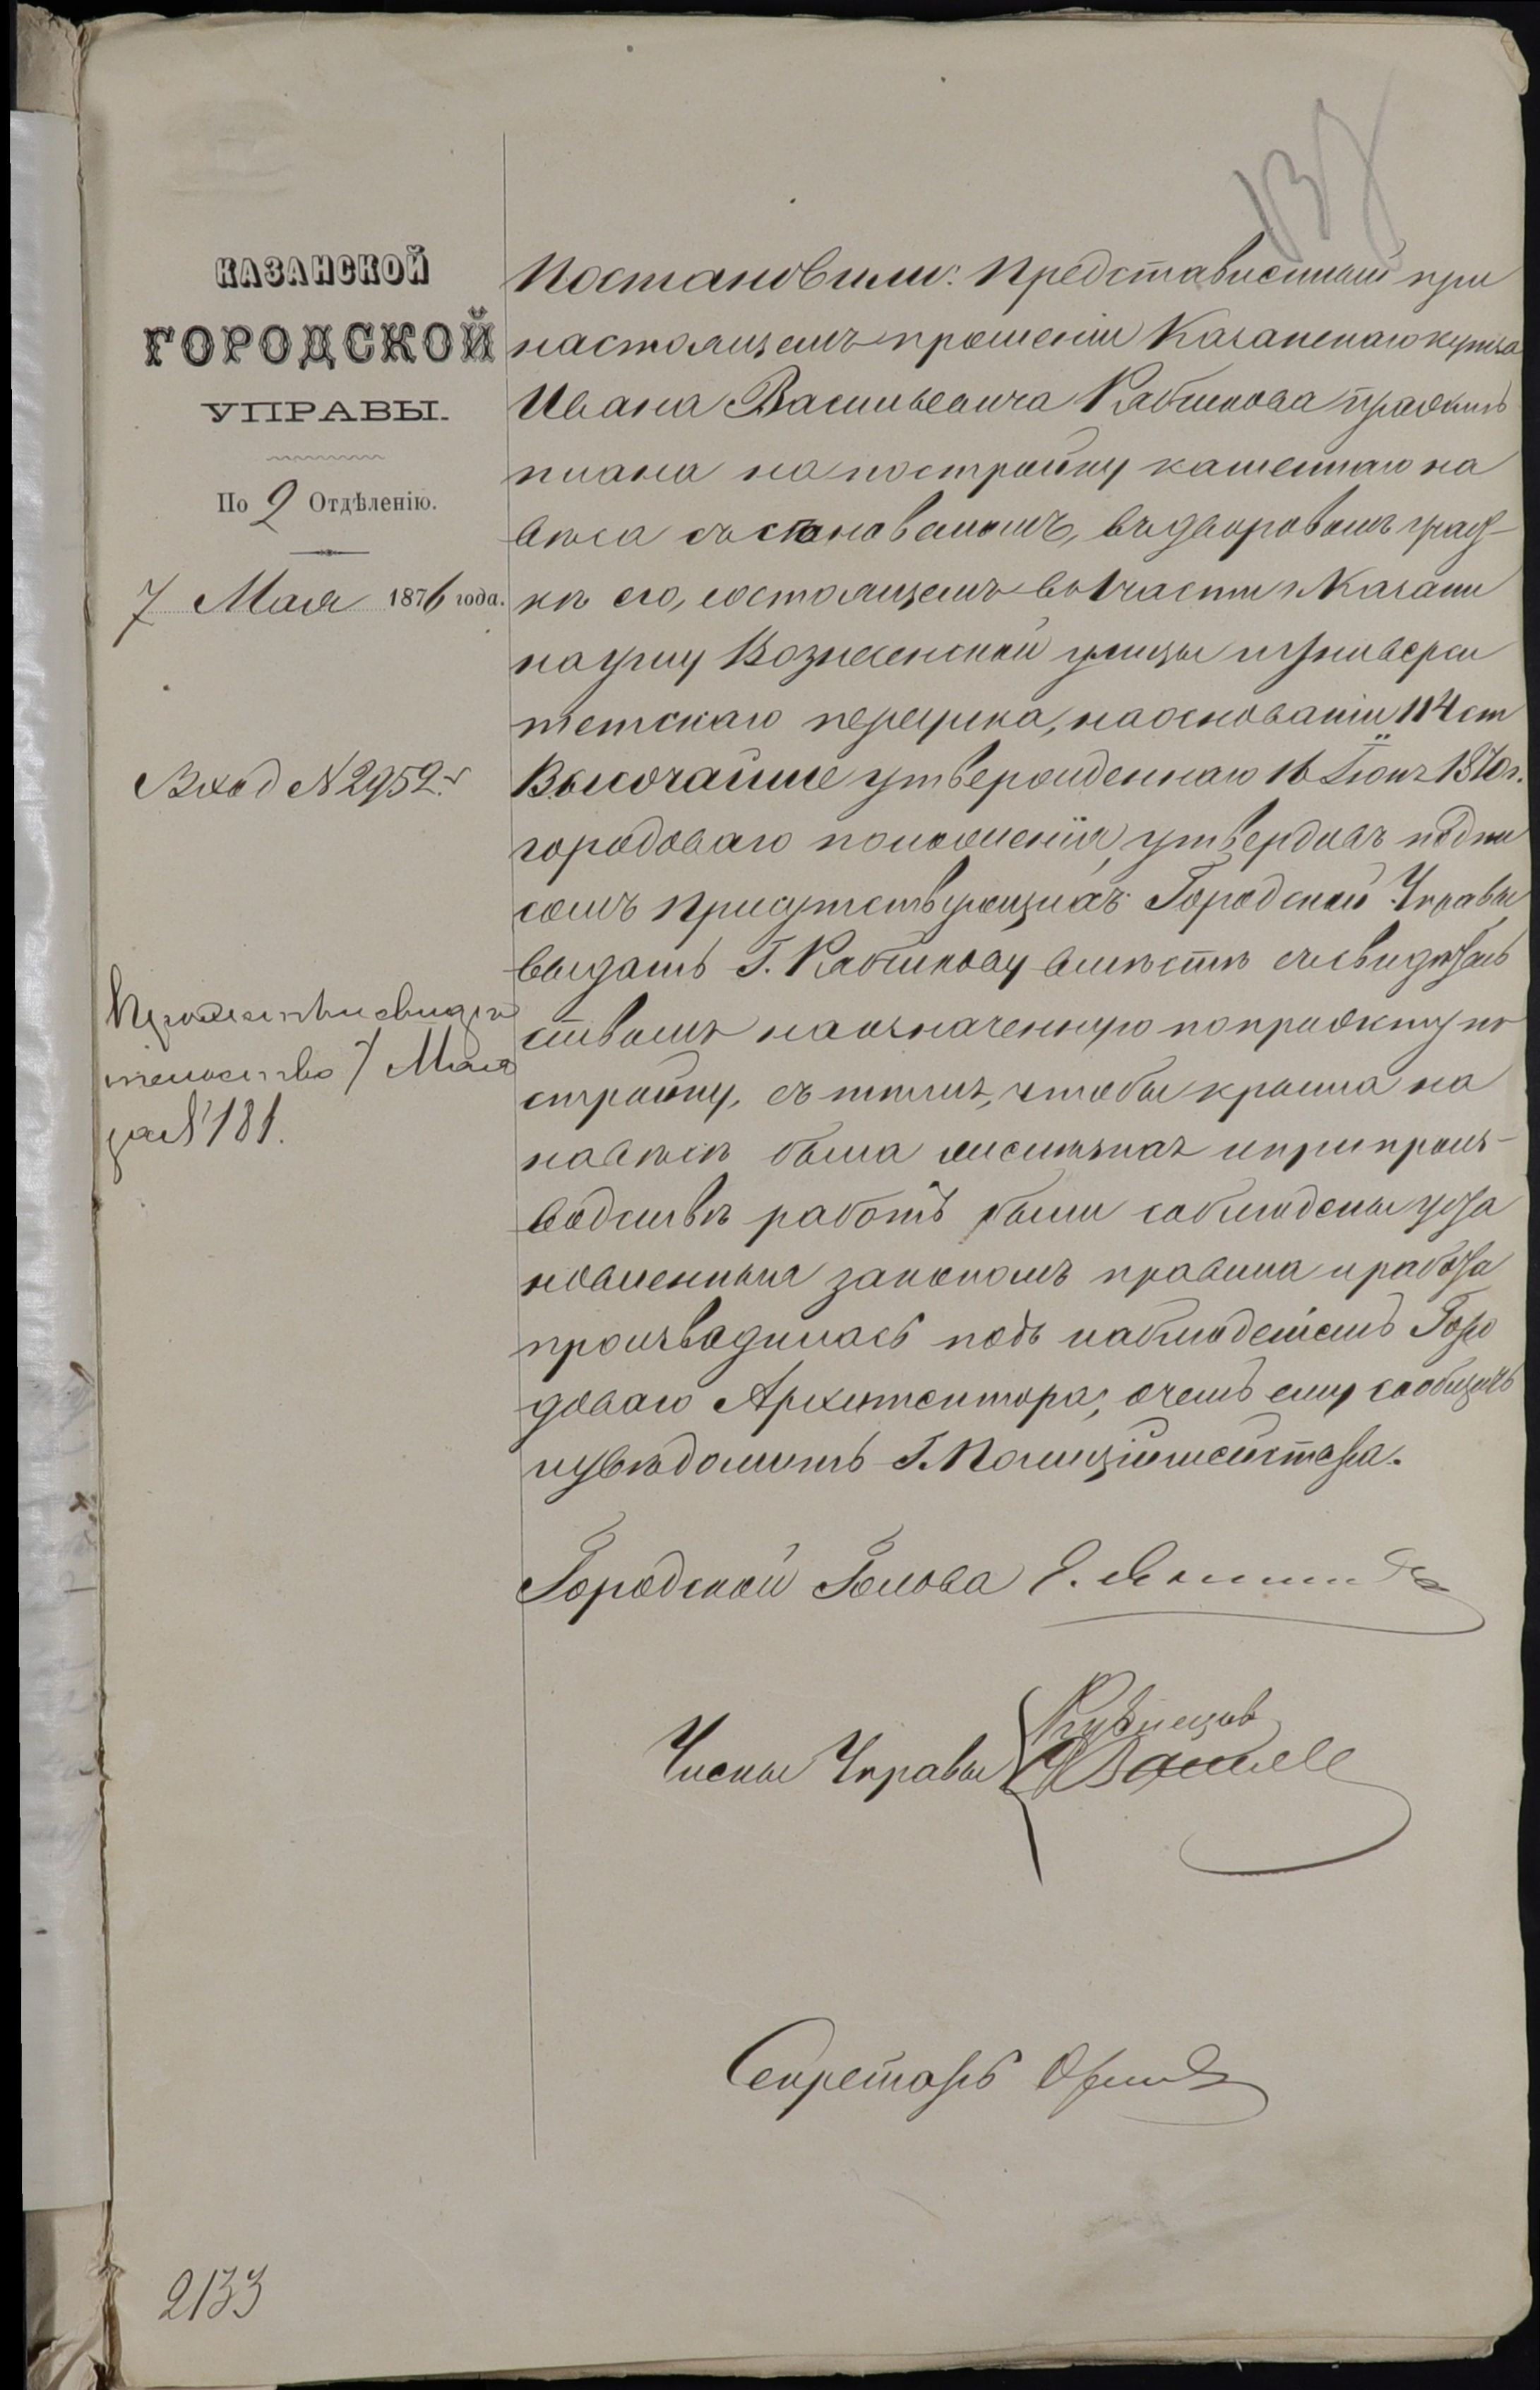 137
КАЗАНСКОЙ
ГОРОДСКОЙ
УПРАВЫ.
По 2 Отдѣленію.
7 Мая 1876 года.
Вход № 2952.
свидѣ
тельство 7 Мая
за № 181.
Постановили: Представленный при
настоящемъ прошеніи Казанскаго купца
Ивана Васильевича Кабликова проэктъ
плана на постройку каменнаго на
вѣса съ становамомъ, въ дворовомъ учас-
кѣ его, состоящемъ въ 1 части г. Казани
на углу Вознесенской улицы и Универси
тетскаго переулка, на основаніи 114 ст
Высочайше утвержденнаго 16 Іюня 1870 г.
городоваго положенія, утвердивъ подпи
сомъ присутствующихъ Городской Управы,
выдать Г. Кабликову вмѣстѣ съ свидѣтель
ствомъ на означенную по проэкту по
стройку, съ тѣмъ, чтобы крыша на
навѣсѣ была желѣзная и при произ-
водствѣ работъ были соблюдены уста
новленныя закономъ правила и работа
производилась подъ наблюденіемъ Горо
доваго Архитектора, о чемъ ему сообщить
и увѣдомить Г. Полиціймейстера.
Городской Голова
Члены Управы
Кузнецов
Секретарь
2133